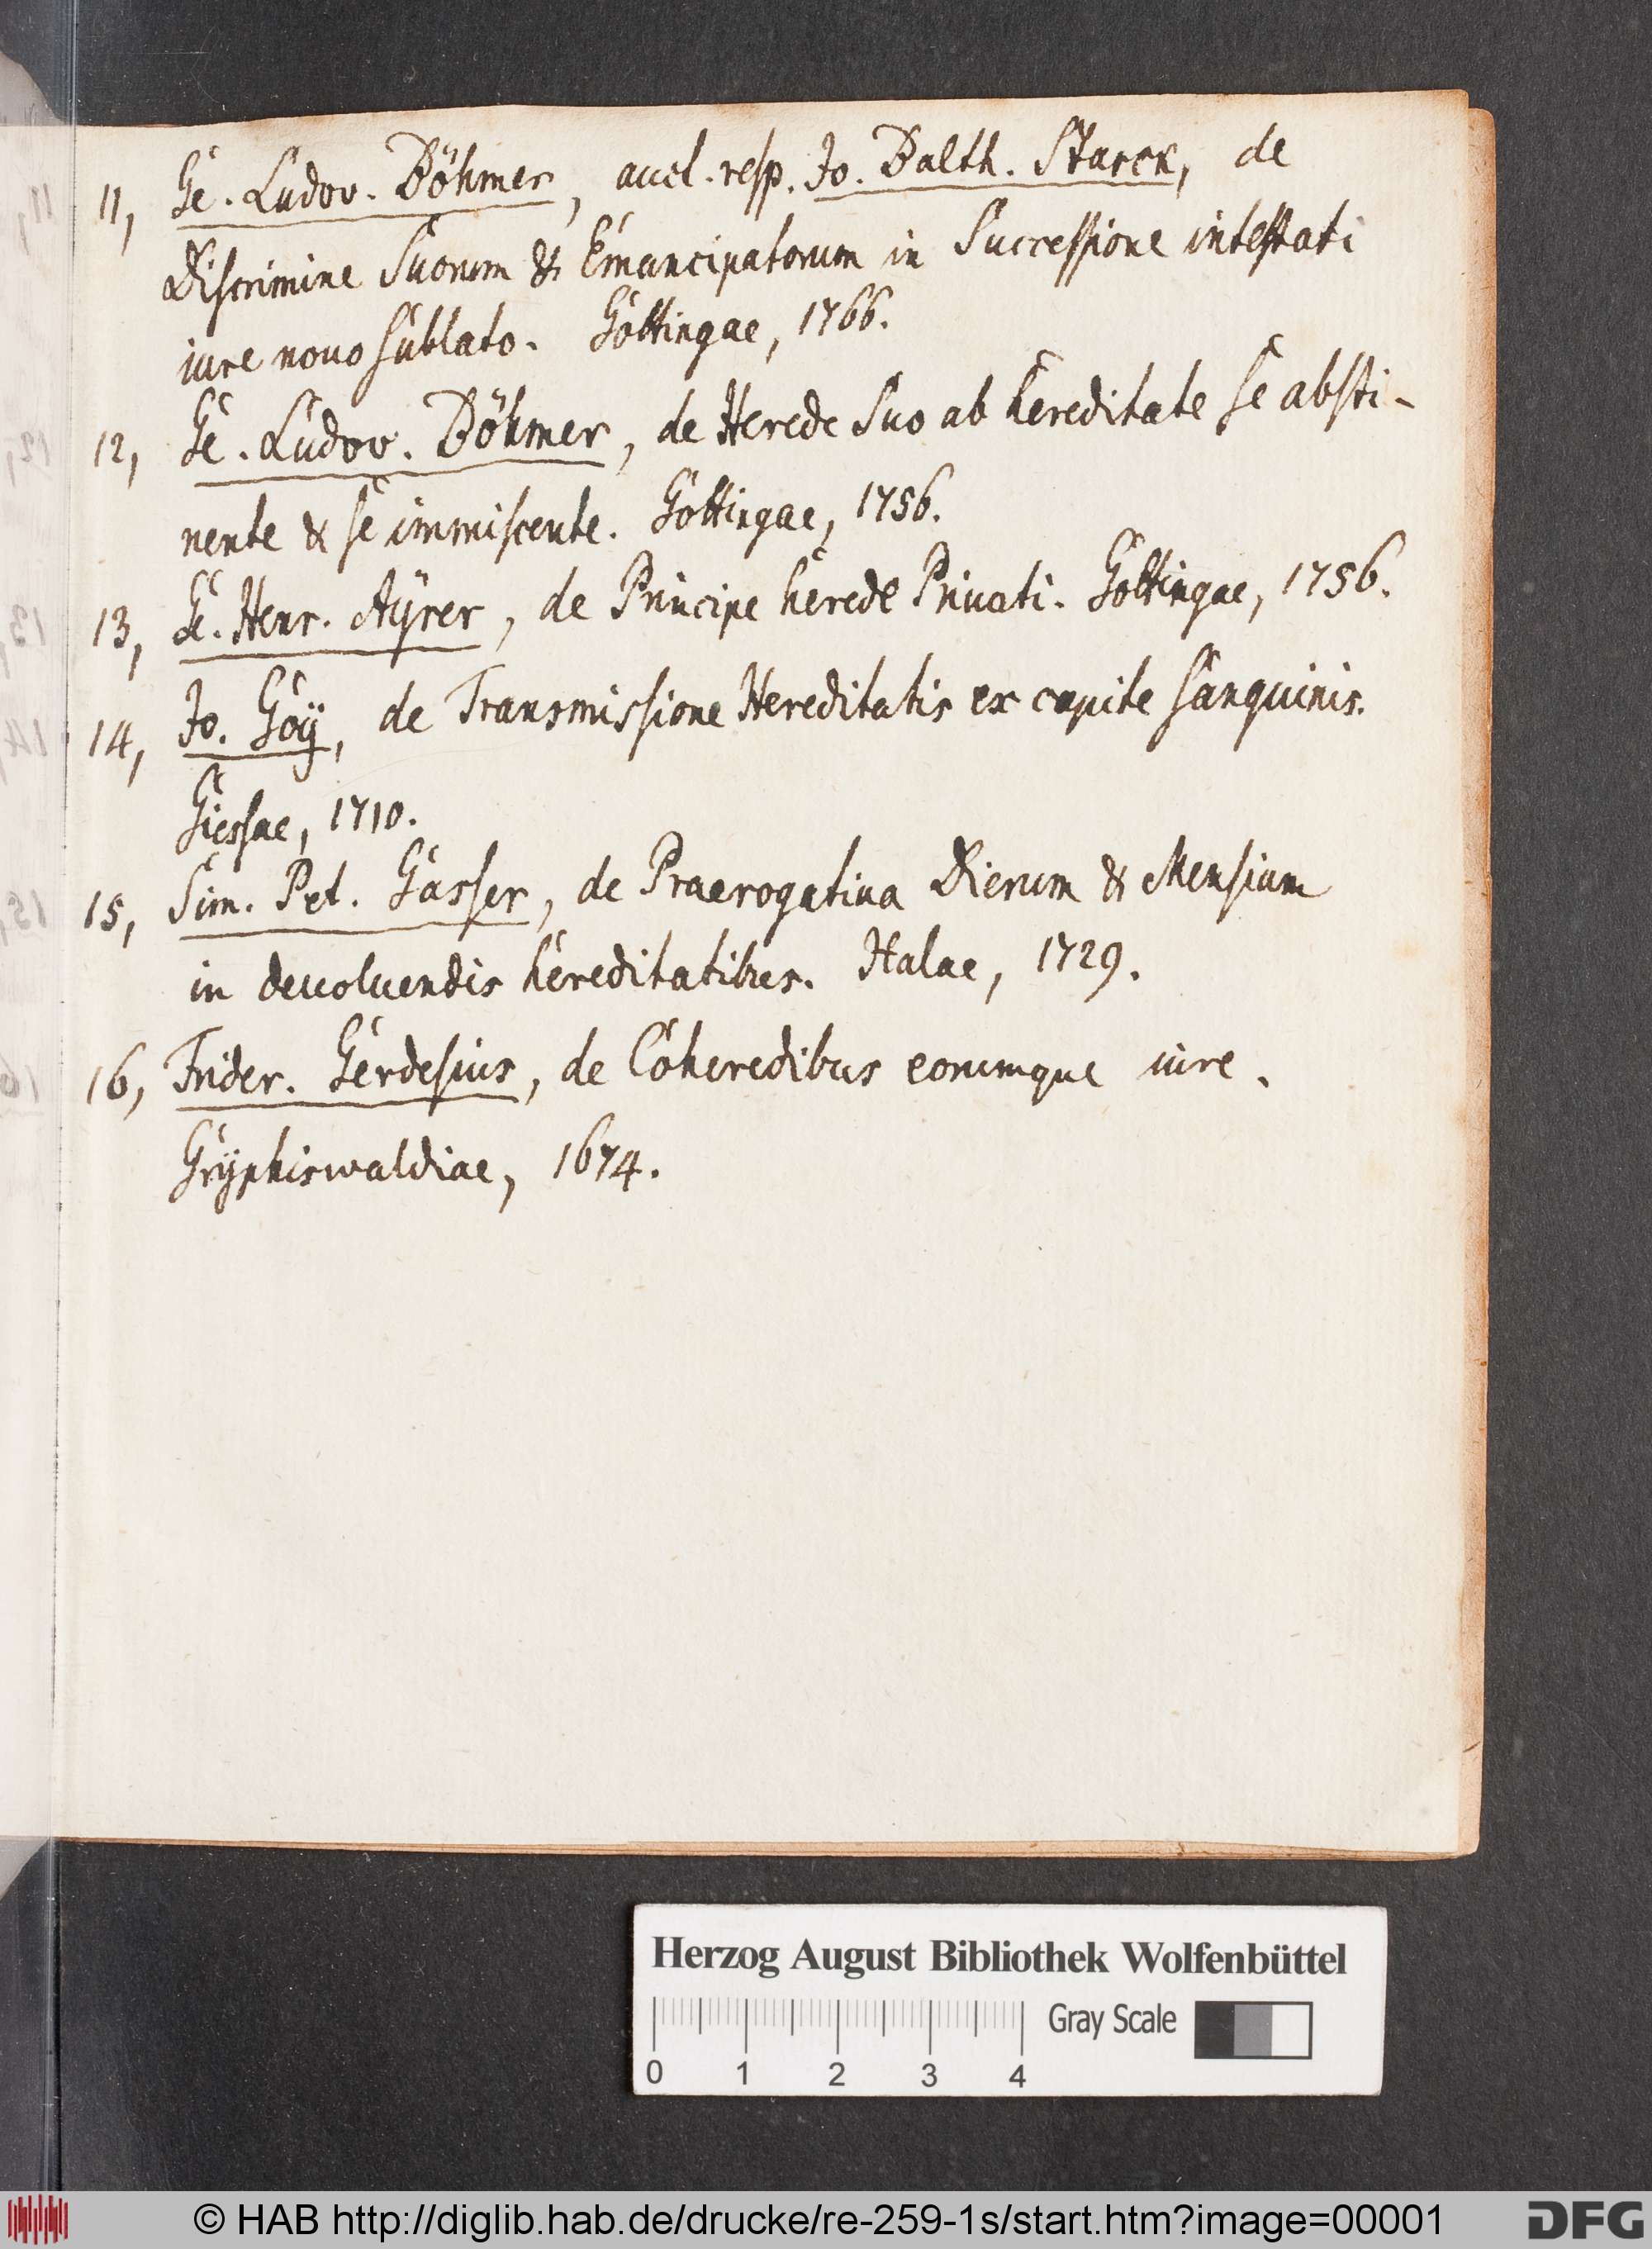 11, Ge. Ludov. Böhmer, auct. resp. Jo. Balth. Starck, de
Discrimine Suorum & Emancipatorum in Successione intestati
iure nouo sublato. Gottingae, 1766.
12, Ge. Ludov. Böhmer, de Herede Suo ab hereditate se absti-
nente & se immiscente. Gottingae, 1756.
13, Ge. Henr. Aÿrer, de Principe herede Priuati. Gottingae, 1756.
14, Jo. Göÿ, de Transmissione Hereditatis ex capite sanguinis.
Giessae, 1710.
15, Sim. Pet. Gasser, de Praerogatiua Dierum & Mensium
in deuoluendis hereditatibus. Halae, 1729.
16, Frider. Gerdesius, de Coheredibus eorumque iure.
Grÿphiswaldiae, 1674.
Herzog August Bibliothek Wolfenbüttel
Gray Scale
0 1 2 3 4
© HAB http://diglib.hab.de/drucke/re-259-1s/start.htm?image=00001
DFG